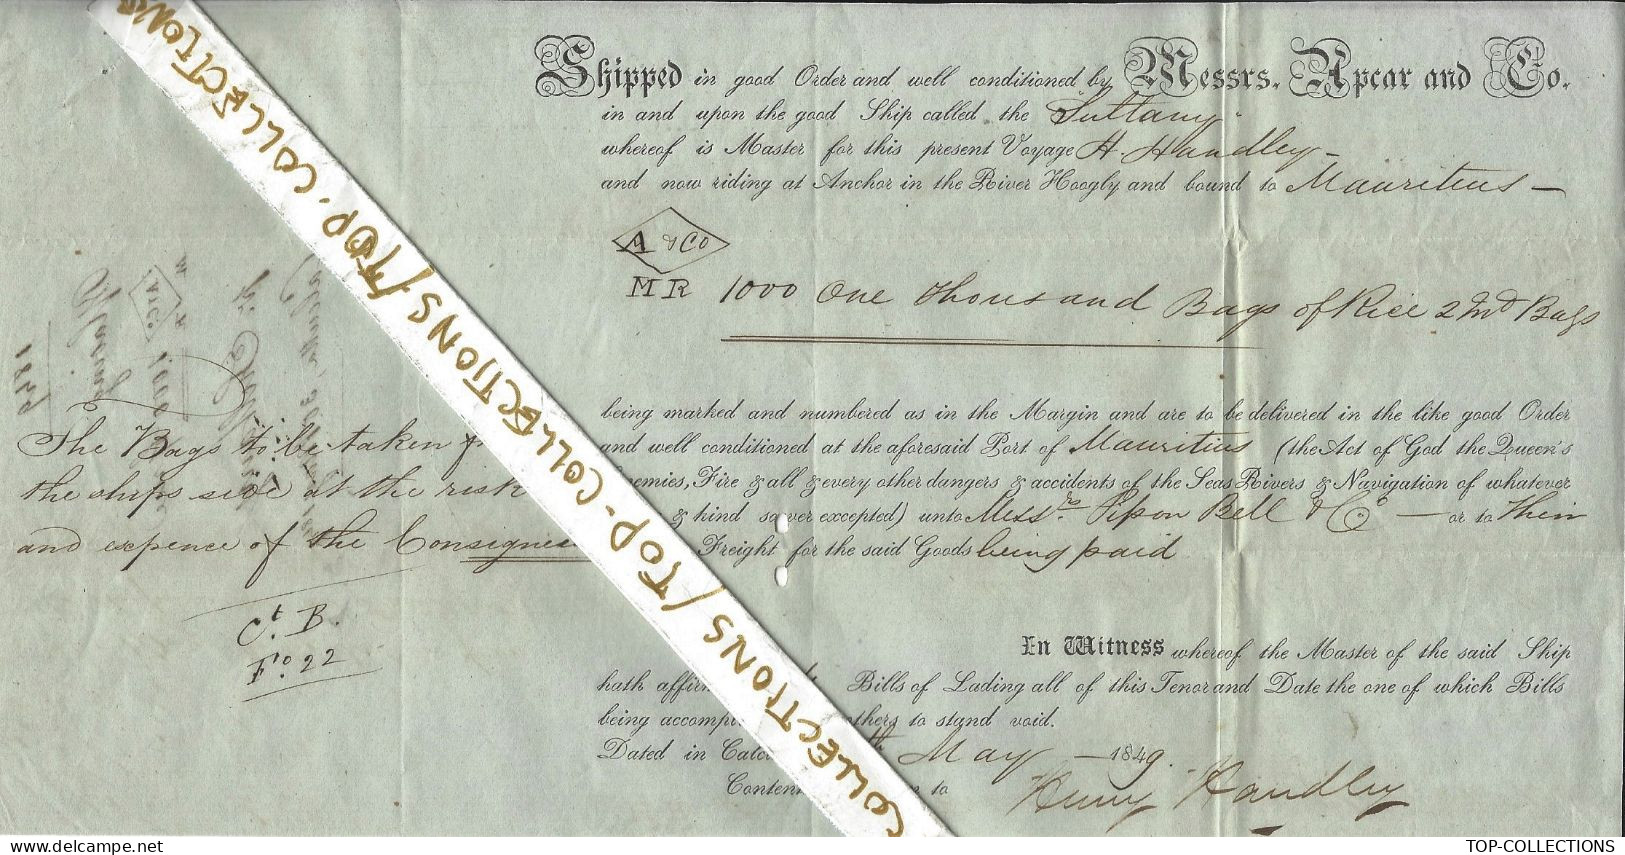 Shipped in good Order and well conditioned by Messrs. Apcar and Co.
in and upon the good Ship called the Sultany
whereof is Master for this present Voyage H. Handley
and now riding at Anchor in the River Hoogly and bound to Mauritius
A & Co
M R 1000 One thousand Bags of Rice 2nd Bags
being marked and numbered as in the Margin and are to be delivered in the like good Order
and well conditioned at the aforesaid Port of Mauritius (the Act of God the Queen's
Enemies, Fire & all & every other dangers & accidents of the Seas Rivers & Navigation of whatever
& kind soever excepted) unto Messrs. Pipon Bell & Co or to Their
Freight for the said Goods being paid
The Bags to be taken
the ships side at the risk
and expence of the Consignee
Ct. B.
Fo. 22
In Witness whereof the Master of the said Ship
hath affirm Bills of Lading all of this Tenor and Date the one of which Bills
being accompl others to stand void.
Dated in Calc th May 1849.
Conten to Henry Handley
COLLECTIONS/TOP-COLLECTIONS/TOP-COLLECTIONS/TOP-COLLECTIONS
1849
www.delcampe.net TOP-COLLECTIONS